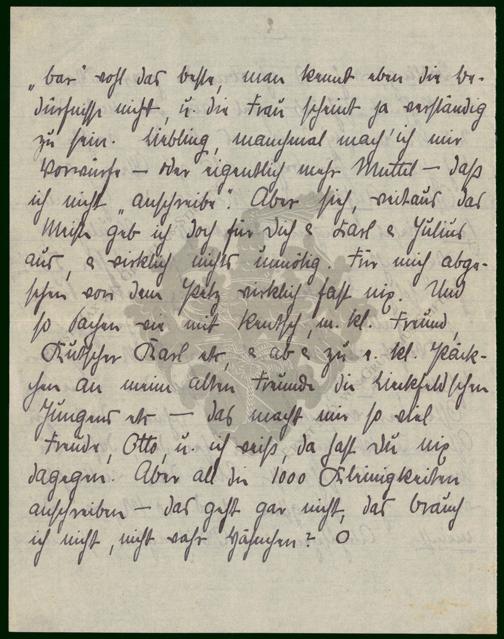 „bar" wohl das beste, man kennt eben die Be-
dürfnisse nicht, u. die Frau scheint ja verständig
zu sein. Liebling, manchmal mach' ich mir
Vorwürfe – oder eigentlich mehr Muttel – daß
ich nicht „anschreibe". Aber sieh, weitaus das
Meiste geb ich doch für Dich & Karl & Julius
aus, & wirklich nichts unnötig. Für mich abge-
sehen von dem Pelz wirklich fast nix. Und
so Sachen wie mit m. kl. Freund,
Kutscher Karl etc, & ab & zu e. kl. Päck-
chen an meine alten Freunde die Linkfeldschen
Jungens etc – das macht mir so viel
Freude, Otto, u. ich weiß, da hast Du nix
dagegen. Aber all die 1000 Kleinigkeiten
anschreiben – das geht gar nicht, das brauch
ich nicht, nicht wahr ? O